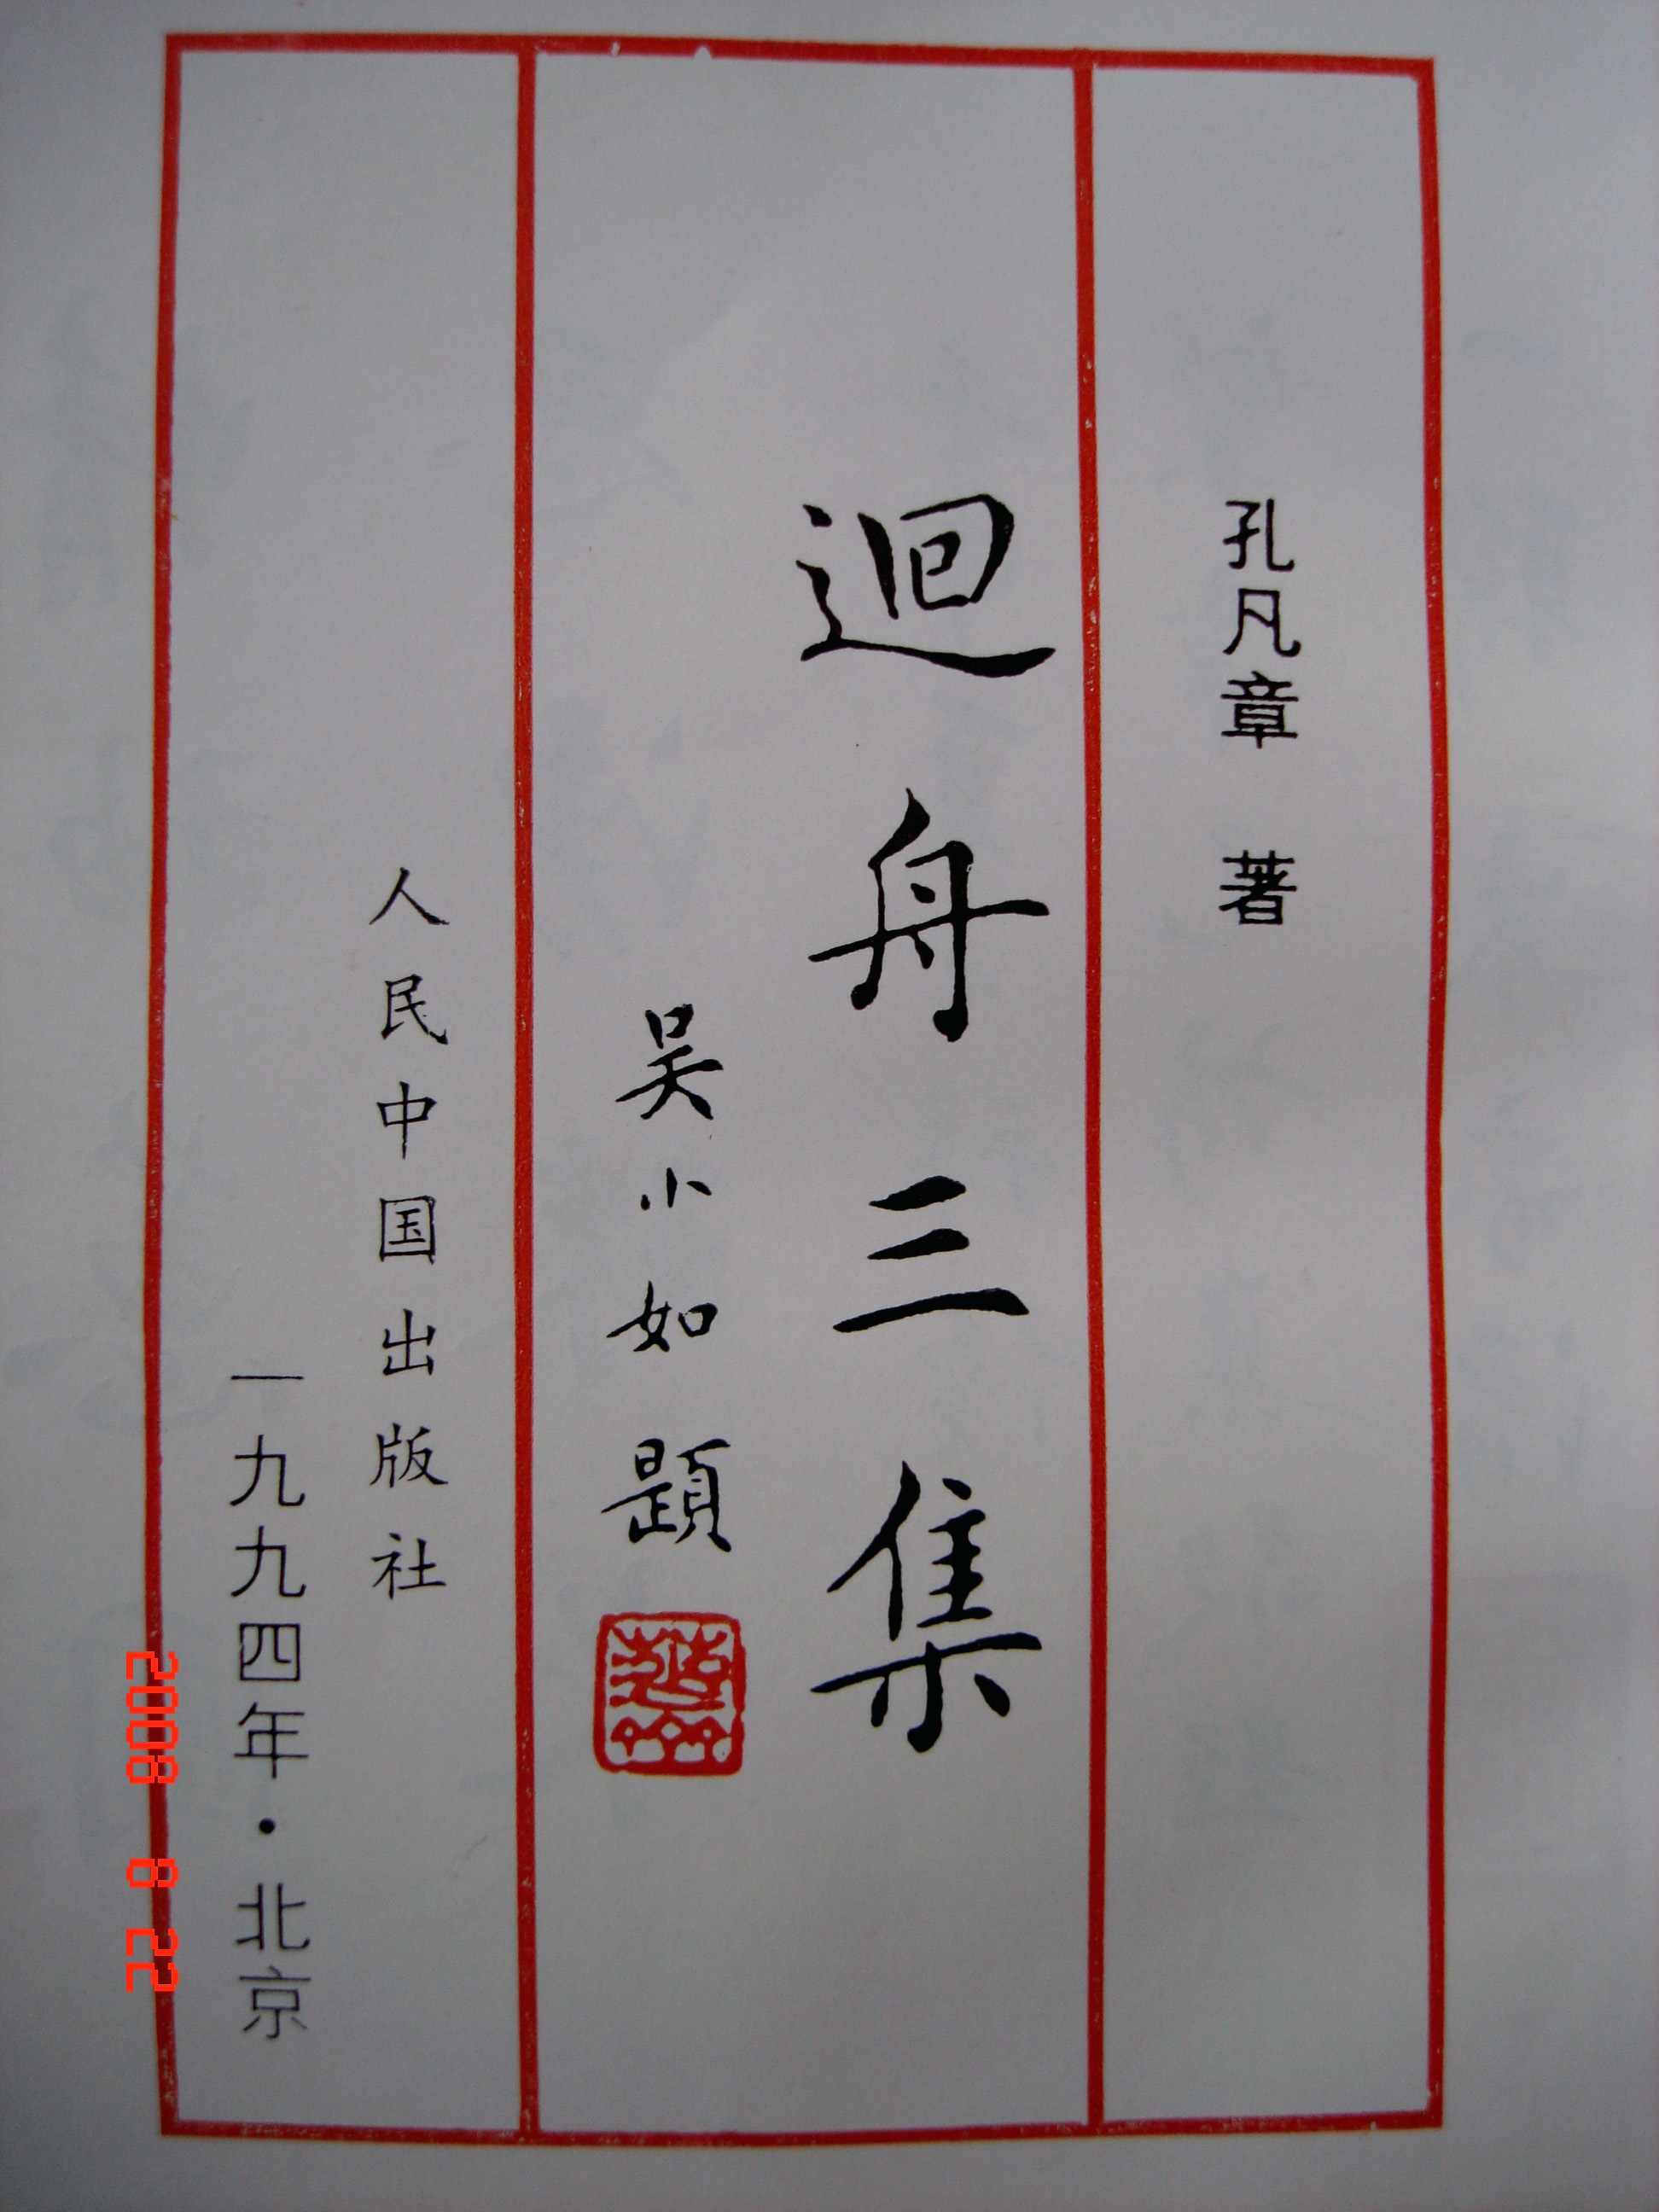 孔凡章 著
迴舟三集
吴小如题
人民中国出版社
一九九四年·北京
2008 8 22